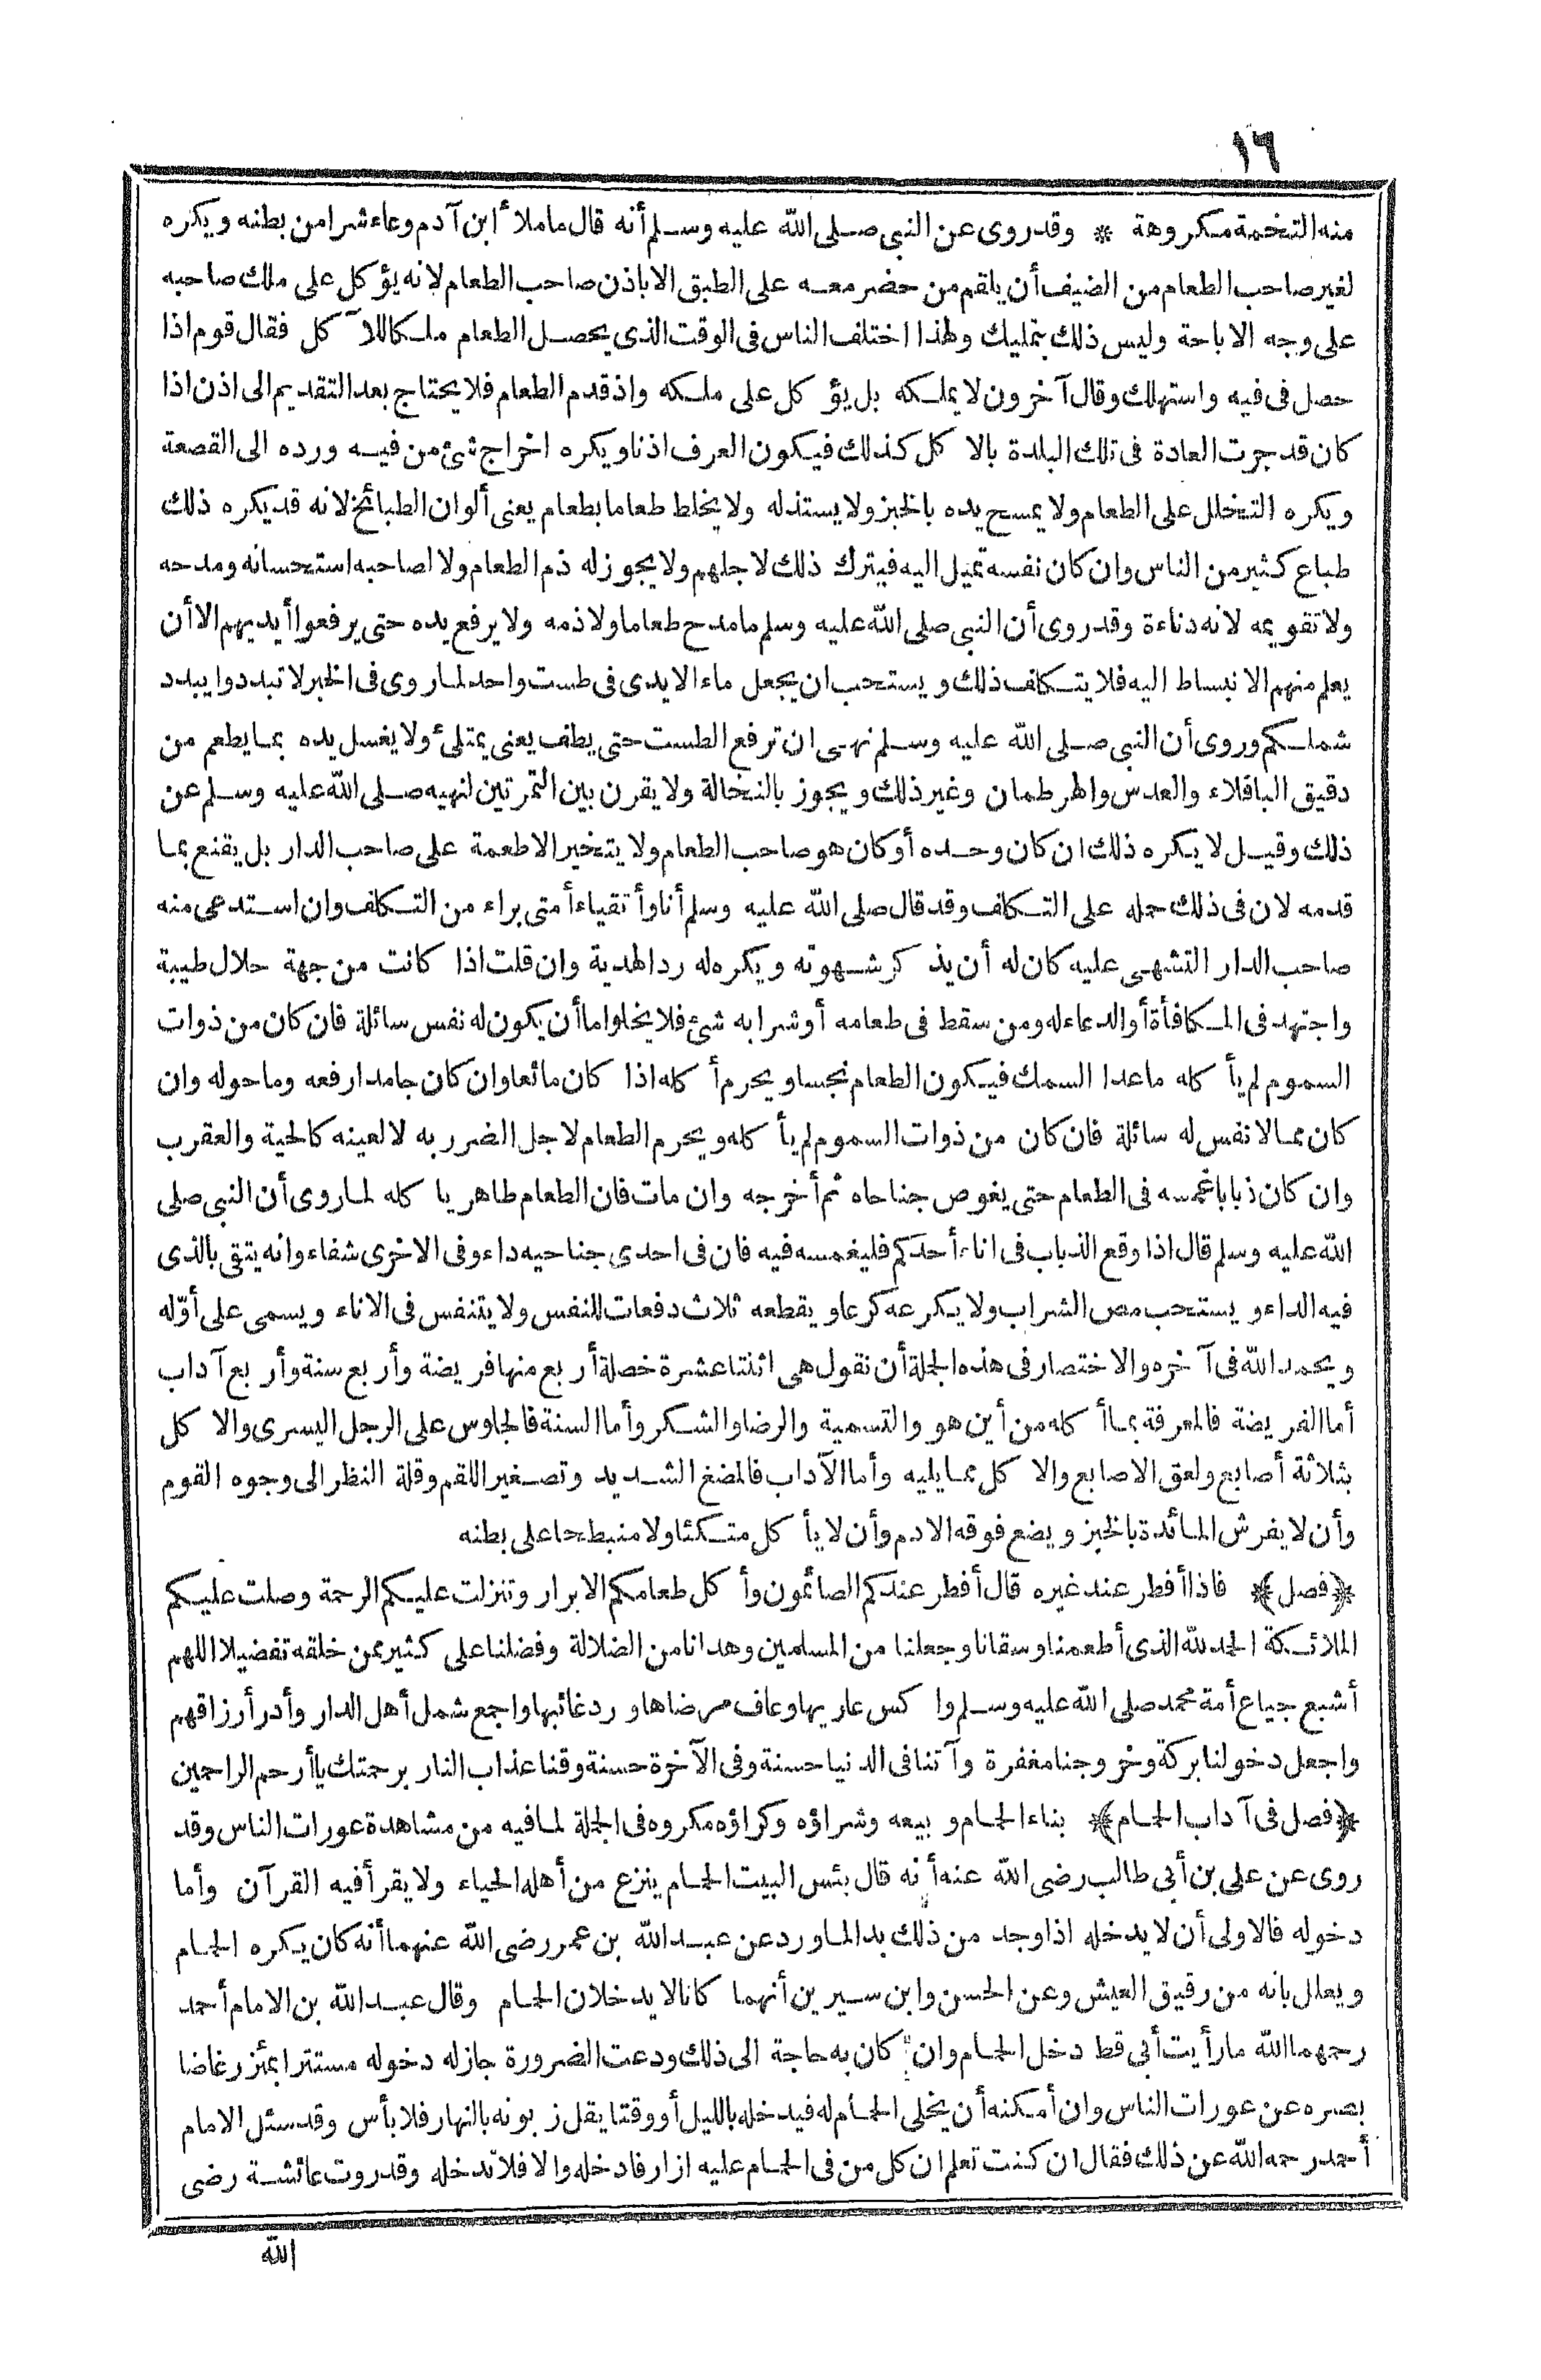 ١٦
منه التخمة مكروهة * وقد روى عن النبى صلى الله عليه وسلم أنه قال ما ملأ ابن آدم وعاء شرا من بطنه ويكره
لغير صاحب الطعام من الضيف أن يلقم من حضر معه على الطبق الا باذن صاحب الطعام لانه يؤكل على ملك صاحبه
على وجه الاباحة وليس ذلك بتمليك ولهذا اختلف الناس فى الوقت الذى يحصل الطعام ملكا للآكل فقال قوم اذا
حصل فى فيه واستهلك وقال آخرون لا يملكه بل يؤكل على ملكه واذ قدم الطعام فلا يحتاج بعد التقديم الى اذن اذا
كان قد جرت العادة فى تلك البلدة بالاكل كذلك فيكون العرف اذنا ويكره اخراج شئ من فيه ورده الى القصعة
ويكره التخلل على الطعام ولا يمسح يده بالخبز ولا يستذله ولا يخلط طعاما بطعام يعنى ألوان الطبائخ لانه قد يكره ذلك
طباع كثير من الناس وان كان نفسه تميل اليه فيترك ذلك لاجلهم ولا يجوز له ذم الطعام ولا لصاحبه استحسانه ومدحه
ولا تقويمه لانه دناءة وقد روى أن النبى صلى الله عليه وسلم ما مدح طعاما ولا ذمه ولا يرفع يده حتى يرفعوا أيديهم الا أن
يعلم منهم الانبساط اليه فلا يتكلف ذلك ويستحب ان يجعل ماء الايدى فى طست واحد لما روى فى الخبر لا تبددوا يبدد
شملكم وروى أن النبى صلى الله عليه وسلم نهى ان ترفع الطست حتى يطف يعنى يمتلئ ولا يغسل يده بما يطعم من
دقيق الباقلاء والعدس والهرطمان وغير ذلك ويجوز بالنخالة ولا يقرن بين التمرتين لنهيه صلى الله عليه وسلم عن
ذلك وقيل لا يكره ذلك ان كان وحده أو كان هو صاحب الطعام ولا يتخير الاطعمة على صاحب الدار بل يقنع بما
قدمه لان فى ذلك حمله على التكلف وقد قال صلى الله عليه وسلم أنا وأتقياء أمتى براء من التكلف وان استدعى منه
صاحب الدار التشهى عليه كان له أن يذكر شهوته ويكره له رد الهدية وان قلت اذا كانت من جهة حلال طيبة
واجتهد فى المكافأة أو الدعاء له ومن سقط فى طعامه أو شرابه شئ فلا يخلو اما أن يكون له نفس سائلة فان كان من ذوات
السموم لم يأكله ما عدا السمك فيكون الطعام نجسا ويحرم أكله اذا كان مائعا وان كان جامدا رفعه وما حوله وان
كان مما لا نفس له سائلة فان كان من ذوات السموم لم يأكله ويحرم الطعام لاجل الضرر به لا لعينه كالحية والعقرب
وان كان ذبابا غمسه فى الطعام حتى يغوص جناحاه ثم أخرجه وان مات فان الطعام طاهر يأكله لما روى أن النبى صلى
الله عليه وسلم قال اذا وقع الذباب فى اناء أحدكم فليغمسه فيه فان فى احدى جناحيه داء وفى الاخرى شفاء وانه يتقى بالذى
فيه الداء ويستحب مص الشراب ولا يكرعه كرعا ويقطعه ثلاث دفعات للنفس ولا يتنفس فى الاناء ويسمى على أوّله
ويحمد الله فى آخره والاختصار فى هذه الجملة أن نقول هى اثنتا عشرة خصلة أربع منها فريضة وأربع سنة وأربع آداب
أما الفريضة فالمعرفة بما أكله من أين هو والتسمية والرضا والشكر وأما السنة فالجلوس على الرجل اليسرى والاكل
بثلاثة أصابع ولعق الاصابع والاكل مما يليه وأما الآداب فالمضغ الشديد وتصغير اللقم وقلة النظر الى وجوه القوم
وأن لا يفرش المائدة بالخبز ويضع فوقه الادم وأن لا يأكل متكئا ولا منبطحا على بطنه
﴿فصل﴾ فاذا أفطر عند غيره قال أفطر عندكم الصائمون وأكل طعامكم الابرار وتنزلت عليكم الرحمة وصلت عليكم
الملائكة الحمد لله الذى أطعمنا وسقانا وجعلنا من المسلمين وهدانا من الضلالة وفضلنا على كثير ممن خلقه تفضيلا اللهم
أشبع جياع أمة محمد صلى الله عليه وسلم واكس عاريها وعاف مرضاها ورد غائبها واجمع شمل أهل الدار وأدر أرزاقهم
واجعل دخولنا بركة وخروجنا مغفرة وآتنا فى الدنيا حسنة وفى الآخرة حسنة وقنا عذاب النار برحمتك يا أرحم الراحمين
﴿فصل فى آداب الحمام﴾ بناء الحمام وبيعه وشراؤه وكراؤه مكروه فى الجملة لما فيه من مشاهدة عورات الناس وقد
روى عن على بن أبى طالب رضى الله عنه أنه قال بئس البيت الحمام ينزع من أهله الحياء ولا يقرأ فيه القرآن وأما
دخوله فالاولى أن لا يدخله اذا وجد من ذلك بدا لما ورد عن عبد الله بن عمر رضى الله عنهما أنه كان يكره الحمام
ويعلل بانه من رقيق العيش وعن الحسن وابن سيرين أنهما كانا لا يدخلان الحمام وقال عبد الله بن الامام أحمد
رحمهما الله ما رأيت أبى قط دخل الحمام وان كان به حاجة الى ذلك ودعت الضرورة جاز له دخوله مستترا بمئزر غاضا
بصره عن عورات الناس وان أمكنه أن يخلى الحمام له فيدخله بالليل أو وقتا يقل زبونه بالنهار فلا بأس وقد سئل الامام
أحمد رحمه الله عن ذلك فقال ان كنت تعلم ان كل من فى الحمام عليه ازار فادخله والا فلا تدخله وقد روت عائشة رضى
الله